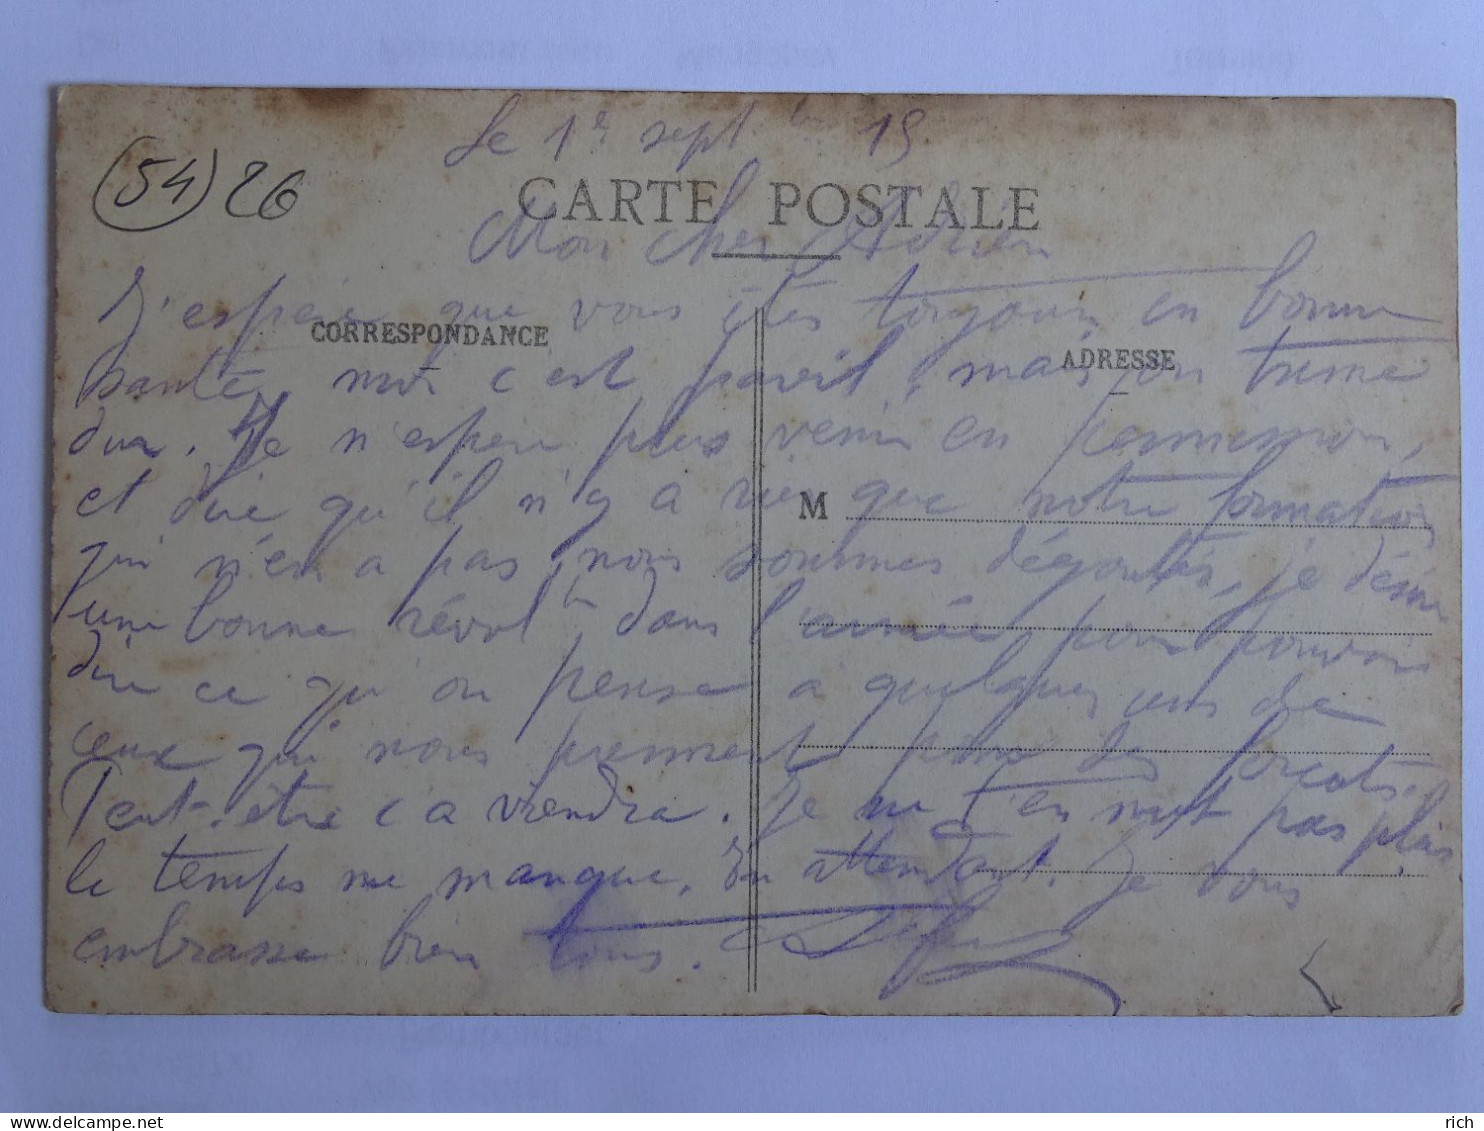 Le 1e septbre 15
(54) 26
CARTE POSTALE
Mon cher Adrien
J'espère que vous êtes toujours en bonne
CORRESPONDANCE
santé, moi c'est pareil, mais on trime
ADRESSE
dur. Je n'espère plus venir en permission,
et dire qu'il n'y a rien que notre formation
M
qui n'en a pas, nous sommes dégoutés, je désire
une bonne révoltn dans l'armée pour pouvoir
dire ce qu'on pense a quelques uns de
ceux qui nous prennent pour des forçats.
Peut-être c'a viendra. Je ne t'en met pas plus
le temps me manque. En attendant. Je vous
embrasse bien tous.
rich